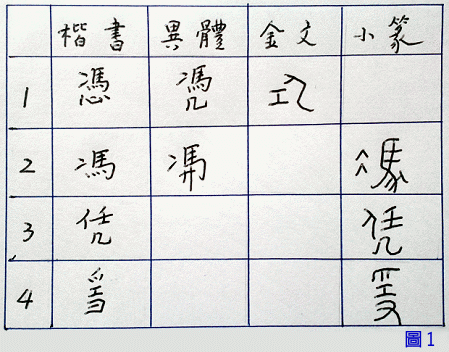 楷書 異體 金文 小篆
1 憑 凴
2 馮 馮
3 凭 凭
4
圖1